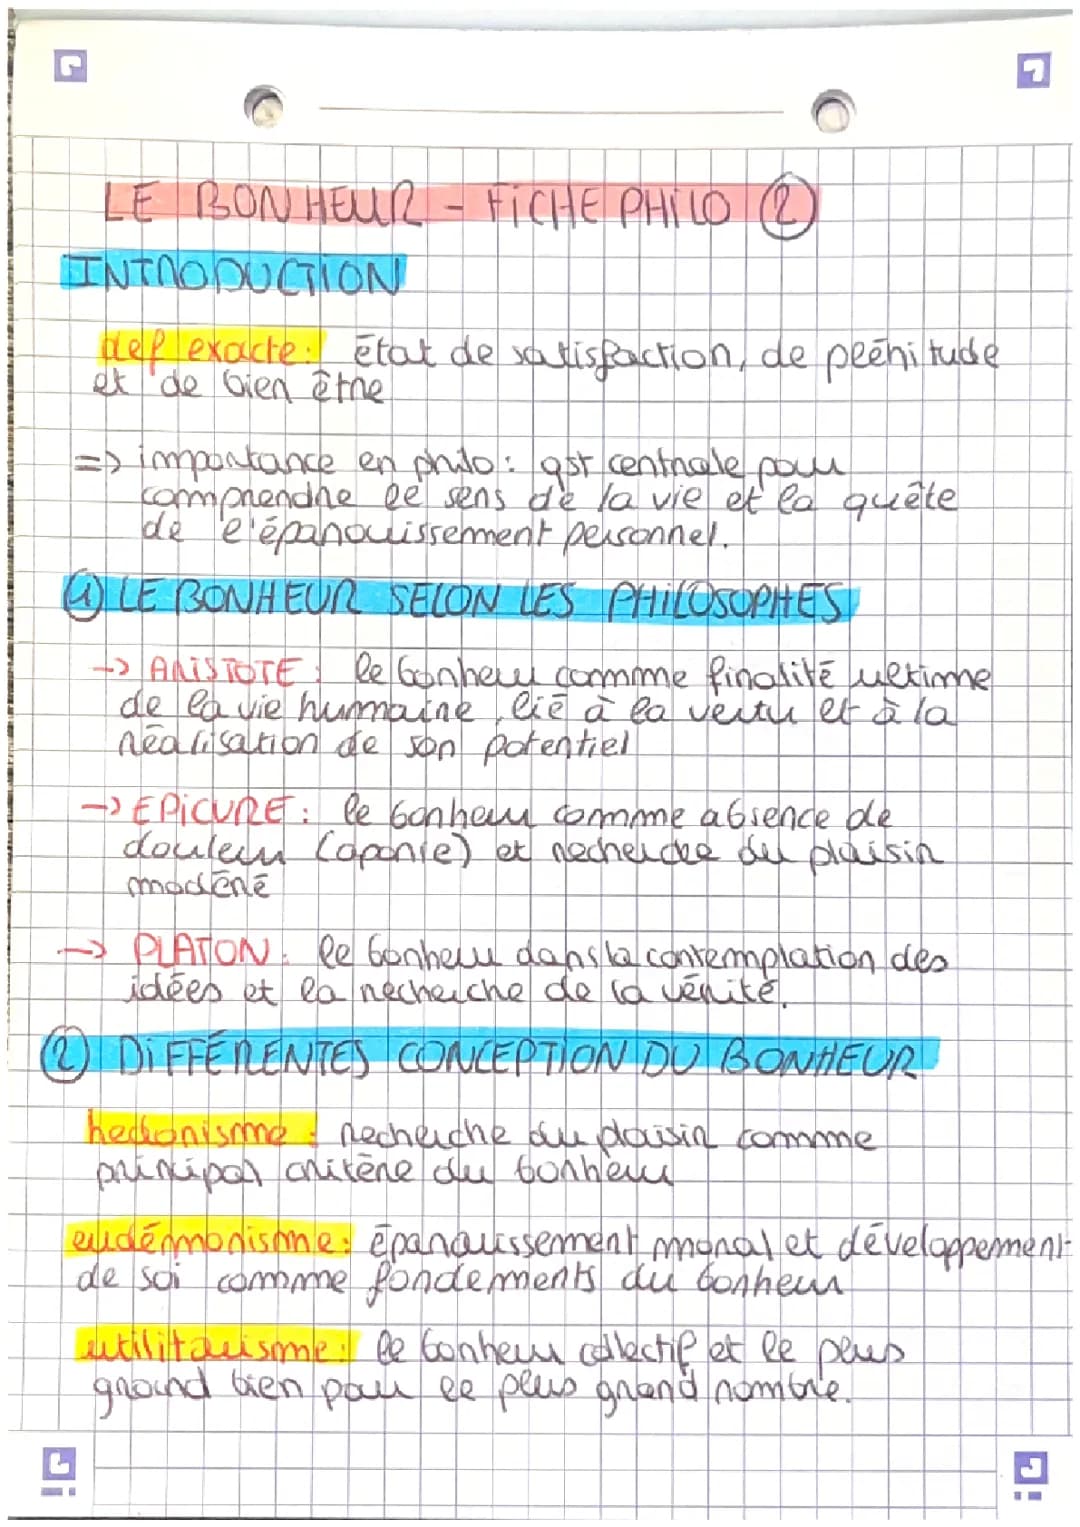 LE BONHEUR - FICHE PHILO ②
INTRODUCTION
def exacte: état de satisfaction, de plénitude
et de bien être
=> importance en philo: qst centrale pour
comprendre le sens de la vie et la quête
de l'épanouissement personnel.
① LE BONHEUR SELON LES PHILOSOPHES
-> ARISTOTE: le bonheur comme finalité ultime
de la vie humaine, lié à la vertu et à la
réalisation de son potentiel
-> EPICURE: le bonheur comme absence de
douleur (aponie) et recherche du plaisir
modéré
-> PLATON: le bonheur dans la contemplation des
idées et la recherche de la vérité.
② DIFFÉRENTES CONCEPTION DU BONHEUR
hedonisme: recherche du plaisir comme
principal critère du bonheur
eudémonisme: épanouissement moral et développement
de soi comme fondements du bonheur
utilitarisme: le bonheur collectif et le plus
grand bien pour le plus grand nombre.